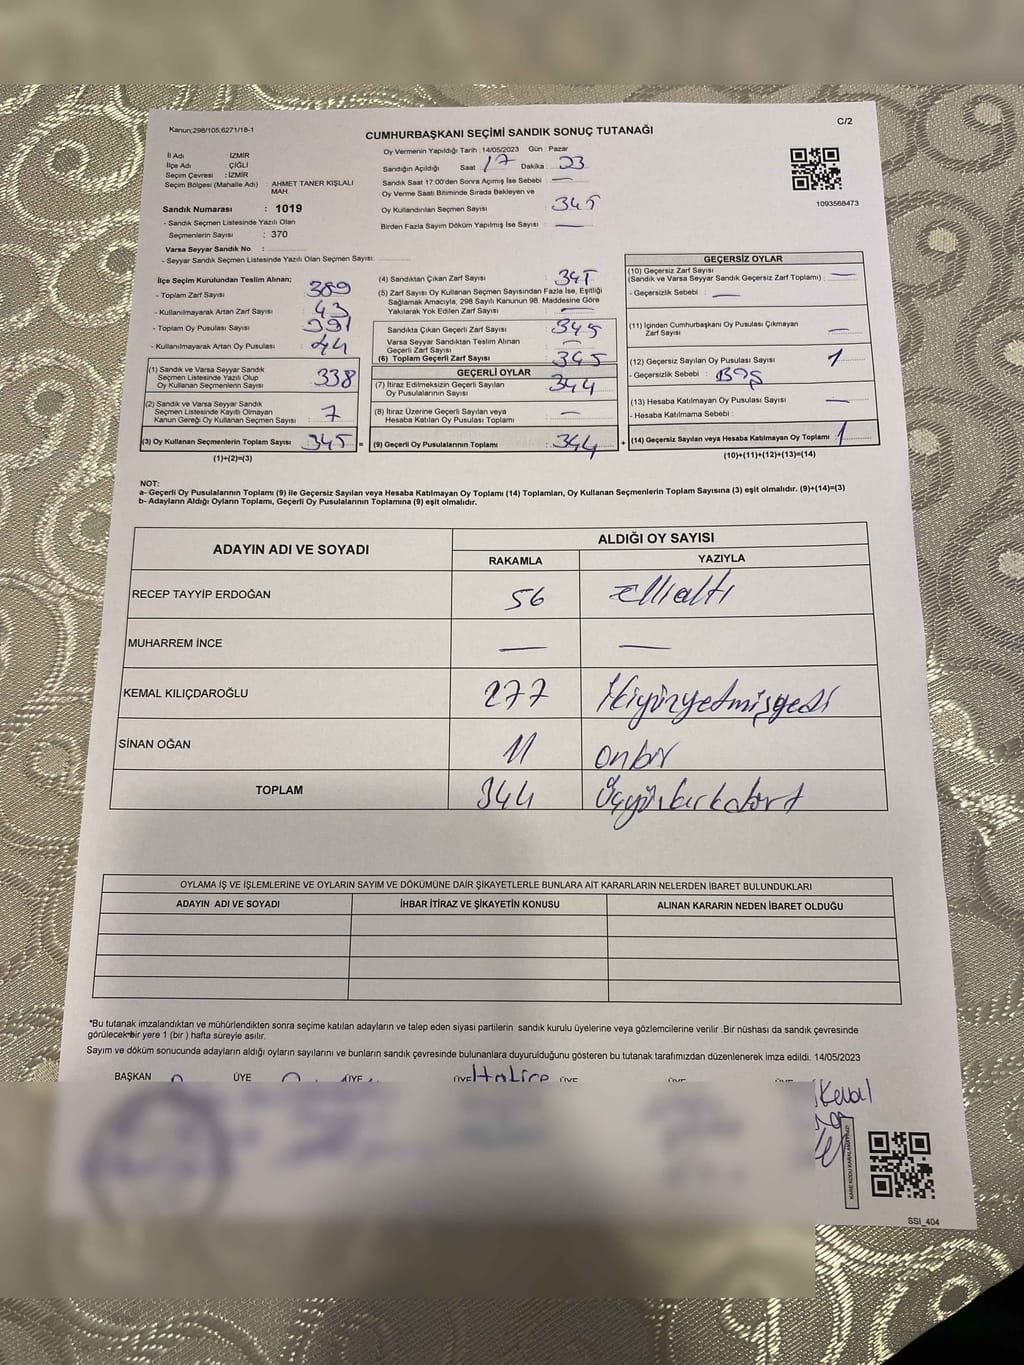 Kanun;298/105;6271/18-1
C/2
CUMHURBAŞKANI SEÇİMİ SANDIK SONUÇ TUTANAĞI
İl Adı : İZMİR
İlçe Adı : ÇİĞLİ
Seçim Çevresi : İZMİR
Seçim Bölgesi (Mahalle Adı) : AHMET TANER KIŞLALI MAH.
Sandık Numarası : 1019
- Sandık Seçmen Listesinde Yazılı Olan
Seçmenlerin Sayısı : 370
Varsa Seyyar Sandık No :
- Seyyar Sandık Seçmen Listesinde Yazılı Olan Seçmen Sayısı:
Oy Vermenin Yapıldığı Tarih : 14/05/2023 Gün : Pazar
Sandığın Açıldığı Saat : 17 Dakika : 23
Sandık Saat 17:00'den Sonra Açımış İse Sebebi : —
Oy Verme Saati Bitiminde Sırada Bekleyen ve
Oy Kullandırılan Seçmen Sayısı : 345
Birden Fazla Sayım Döküm Yapılmış İse Sayısı : —
1093568473
İlçe Seçim Kurulundan Teslim Alınan;
- Toplam Zarf Sayısı : 389
- Kullanılmayarak Artan Zarf Sayısı : 43
- Toplam Oy Pusulası Sayısı : 391
- Kullanılmayarak Artan Oy Pusulası : 44
(1) Sandık ve Varsa Seyyar Sandık
Seçmen Listesinde Yazılı Olup
Oy Kullanan Seçmenlerin Sayısı : 338
(2) Sandık ve Varsa Seyyar Sandık
Seçmen Listesinde Kayıtlı Olmayan
Kanun Gereği Oy Kullanan Seçmen Sayısı : 7
(3) Oy Kullanan Seçmenlerin Toplam Sayısı : 345 =
(1)+(2)=(3)
(4) Sandıktan Çıkan Zarf Sayısı : 345
(5) Zarf Sayısı Oy Kullanan Seçmen Sayısından Fazla İse, Eşitliği
Sağlamak Amacıyla; 298 Sayılı Kanunun 98. Maddesine Göre
Yakılarak Yok Edilen Zarf Sayısı : —
Sandıkta Çıkan Geçerli Zarf Sayısı : 345
Varsa Seyyar Sandıktan Teslim Alınan
Geçerli Zarf Sayısı : —
(6) Toplam Geçerli Zarf Sayısı : 345
GEÇERLİ OYLAR
(7) İtiraz Edilmeksizin Geçerli Sayılan
Oy Pusulalarının Sayısı : 344
(8) İtiraz Üzerine Geçerli Sayılan veya
Hesaba Katılan Oy Pusulası Toplamı : —
(9) Geçerli Oy Pusulalarının Toplamı : 344 +
GEÇERSİZ OYLAR
(10) Geçersiz Zarf Sayısı
(Sandık ve Varsa Seyyar Sandık Geçersiz Zarf Toplamı) : —
- Geçersizlik Sebebi : —
(11) İçinden Cumhurbaşkanı Oy Pusulası Çıkmayan
Zarf Sayısı : —
(12) Geçersiz Sayılan Oy Pusulası Sayısı : 1
- Geçersizlik Sebebi : Boş
(13) Hesaba Katılmayan Oy Pusulası Sayısı : —
- Hesaba Katılmama Sebebi :
(14) Geçersiz Sayılan veya Hesaba Katılmayan Oy Toplamı : 1
(10)+(11)+(12)+(13)=(14)
NOT:
a- Geçerli Oy Pusulalarının Toplamı (9) ile Geçersiz Sayılan veya Hesaba Katılmayan Oy Toplamı (14) Toplamları, Oy Kullanan Seçmenlerin Toplam Sayısına (3) eşit olmalıdır. (9)+(14)=(3)
b- Adayların Aldığı Oyların Toplamı, Geçerli Oy Pusulalarının Toplamına (9) eşit olmalıdır.
ADAYIN ADI VE SOYADI ALDIĞI OY SAYISI
RAKAMLA YAZIYLA
RECEP TAYYİP ERDOĞAN 56 Ellialtı
MUHARREM İNCE — —
KEMAL KILIÇDAROĞLU 277 İkiyüzyetmişyedi
SİNAN OĞAN 11 onbir
TOPLAM 344 Üçyüzkırkdört
OYLAMA İŞ VE İŞLEMLERİNE VE OYLARIN SAYIM VE DÖKÜMÜNE DAİR ŞİKAYETLERLE BUNLARA AİT KARARLARIN NELERDEN İBARET BULUNDUKLARI
ADAYIN ADI VE SOYADI İHBAR İTİRAZ VE ŞİKAYETİN KONUSU ALINAN KARARIN NEDEN İBARET OLDUĞU
*Bu tutanak imzalandıktan ve mühürlendikten sonra seçime katılan adayların ve talep eden siyasi partilerin sandık kurulu üyelerine veya gözlemcilerine verilir .Bir nüshası da sandık çevresinde
görülecek bir yere 1 (bir ) hafta süreyle asılır.
Sayım ve döküm sonucunda adayların aldığı oyların sayılarını ve bunların sandık çevresinde bulunanlara duyurulduğunu gösteren bu tutanak tarafımızdan düzenlenerek imza edildi. 14/05/2023
BAŞKAN ÜYE ÜYE ÜYE Hatice ÜYE ÜYE ÜYE
SSI_404